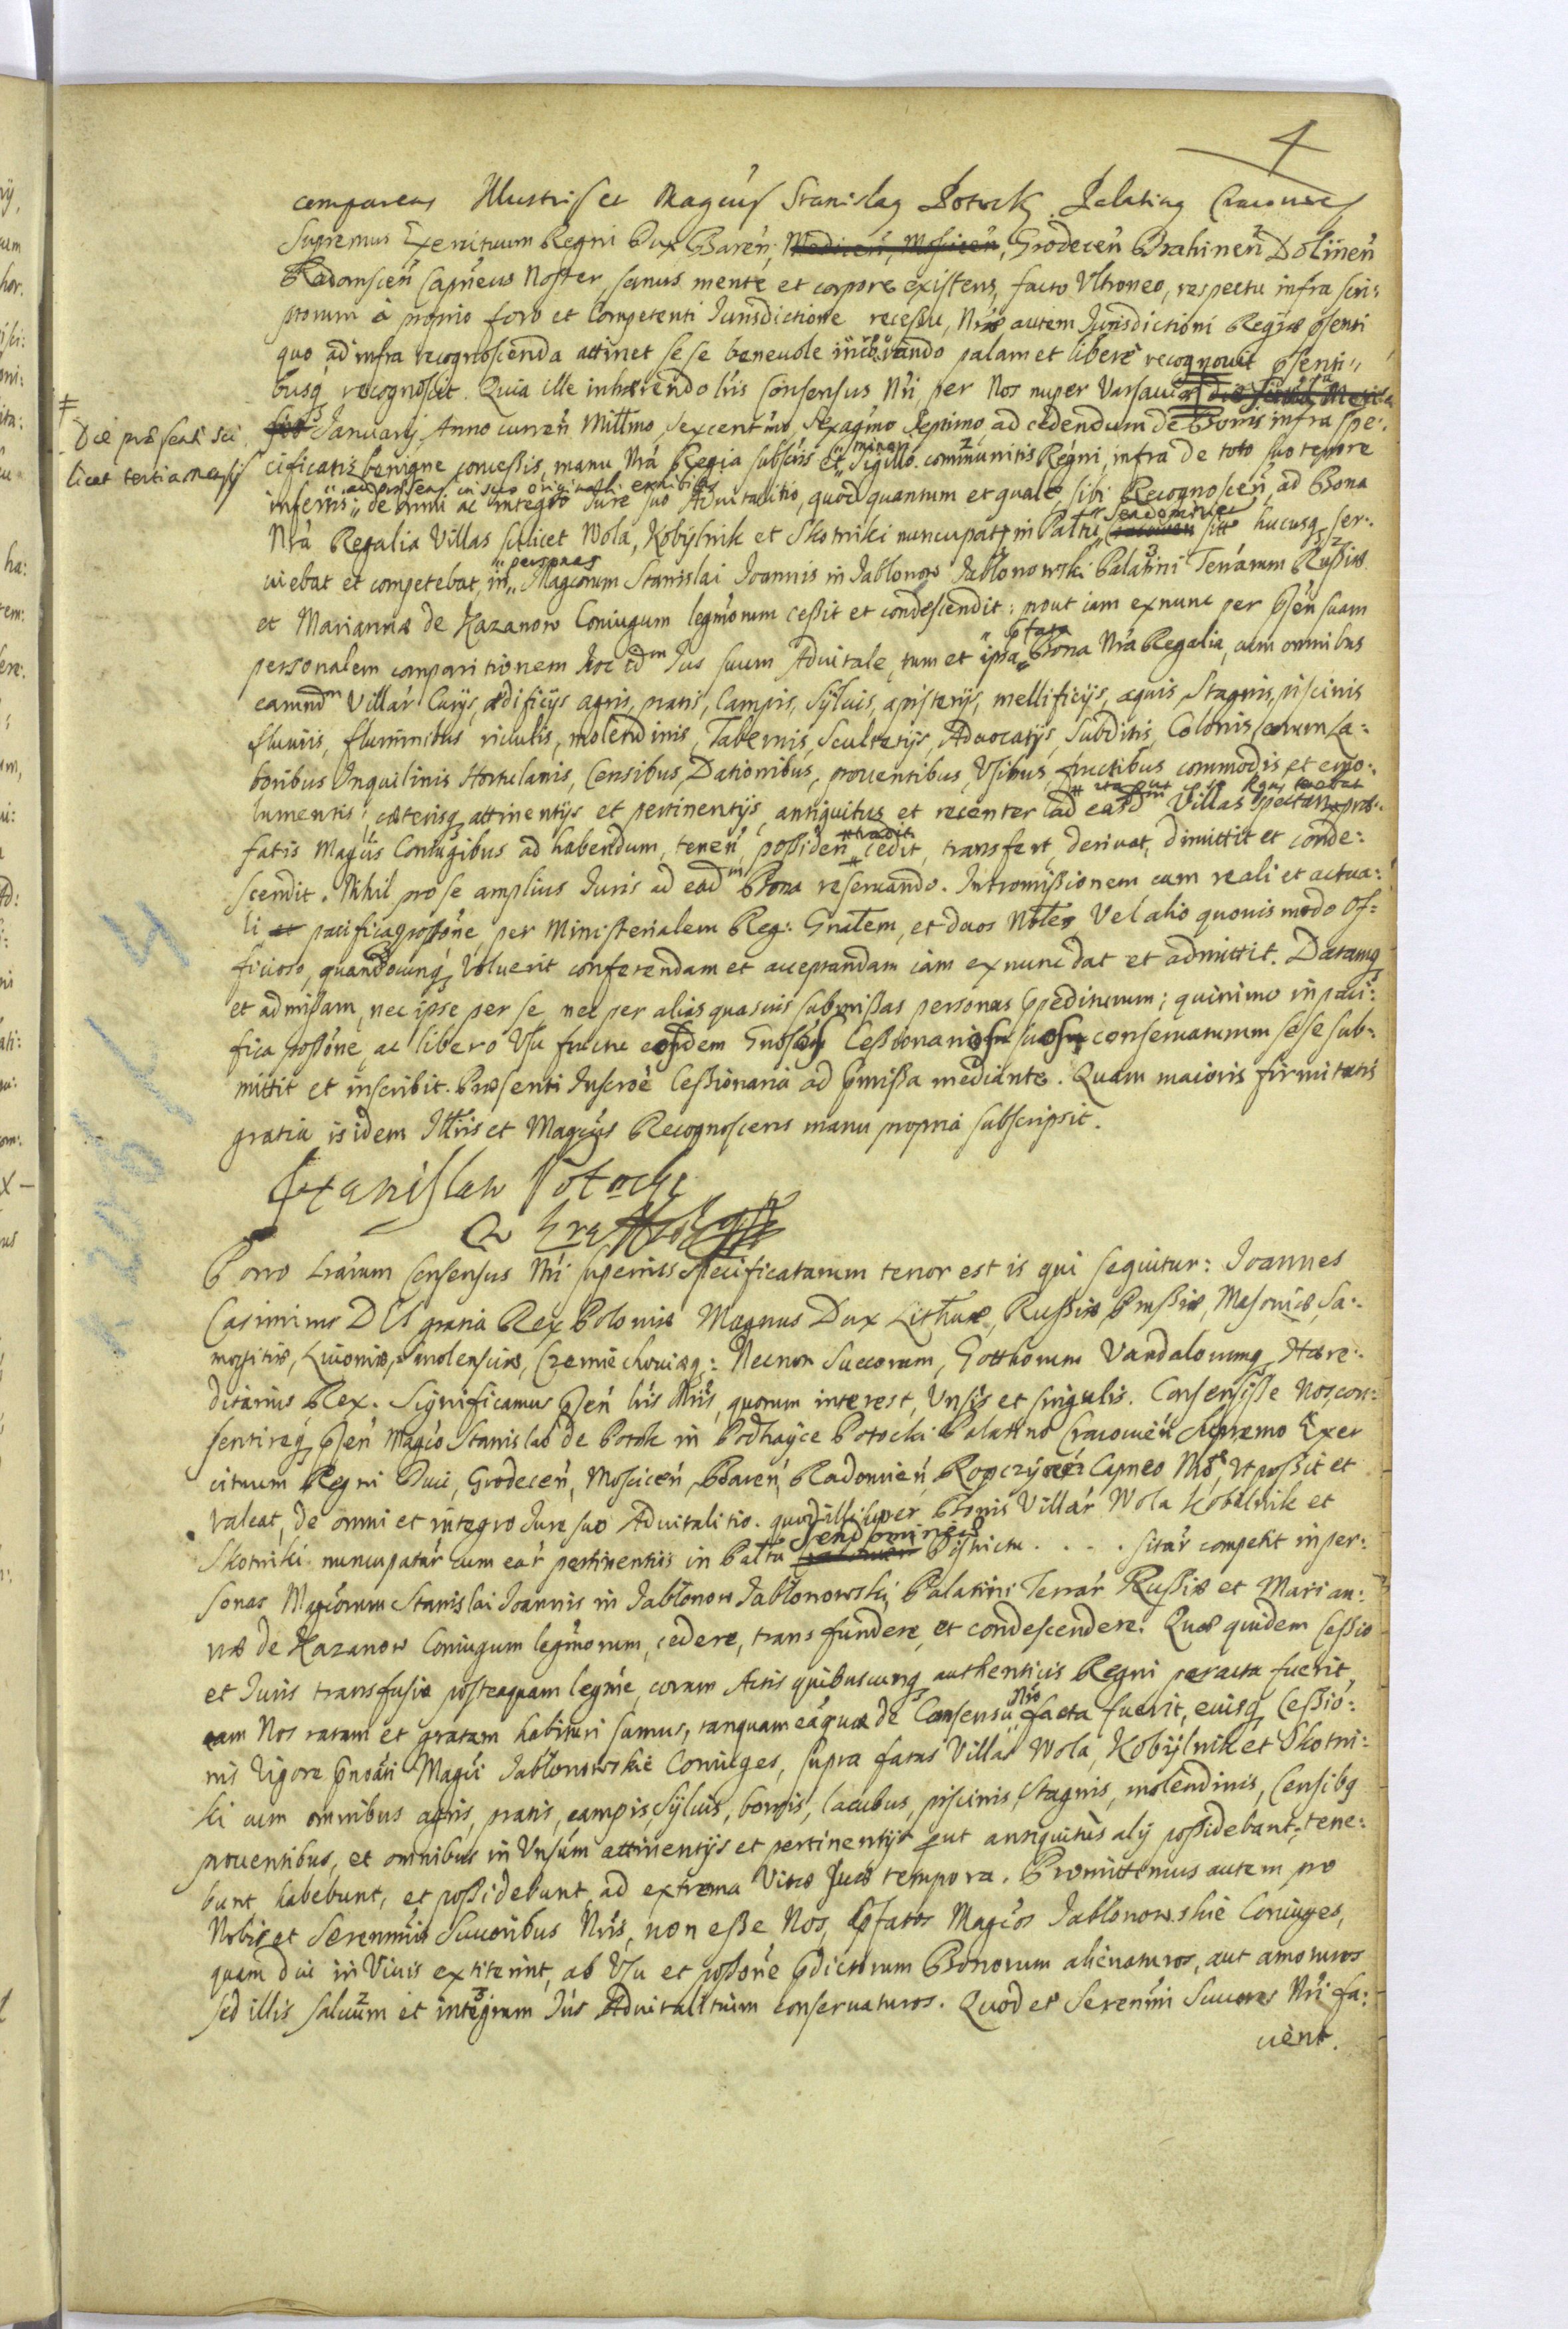 4
comparens Illustris et Magcus Stanislaus Potocki Palatinus Cracouien
Supremus Exercituum Regni Dux Baren, Grodecen Brahinen Dolinen
Radomscen Capneus Noster, sanus mente et corpore existens, facto Vltroneo, respectu infra scri:
ptorum à proprio foro et Competenti Jurisdictione recessu, Nrae autem Jurisdictioni Regiae psenti
quo ad infra recognoscenda attinet sese beneuole incorporando palam et liberè recognouit psenti"
busq recognoscit. Quia ille inhaerendo lris Consensus Nri, per Nos nuper Varsauiae die
Januarij Anno curren Millmo, sexcentmo, Sexagmo Septimo ad cedendum de Bonis infra spe:
‡ Die praesenti sci
licet tertia mensis
cificatis benigne concessis, manu Nrâ Regia subscris et "minori Sigillo communitis Regni, infra de toto suo tenore
insertis "ad praesens in suo originali exhibitis de omni ac integro Jure suo Aduitalitio, quod quantum et quale sibi Recognoscen, ad Bona
Nrâ Regalia Villas scilicet Wola, Kobÿlnik et Skotniki nuncupatas in Pałtu "Sendomirien sitt hucusq ser:
uiebat et competebat, in "personas Magcorum Stanislai Joannis in Jabłonow Jabłonowski Palatini Terrarum Russiae
et Mariannae de Kazanow Coniugum legmorum cessit et condescendit: prout iam exnunc per psen suam
personalem comparitionem hoc idm Jus suum Aduitale, tum et ipsa "pfata Bona Nrâ Regalia, cum omnibus
earundm Villar Curijs, aedificijs agris, pratis, Campis, Syluis, apisterijs, mellificijs, aquis, Stagnis, piscinis
fluuiis, fluminibus riuulis, molendinis, Tabernis, Scultetijs, Aduocatijs, Subditis, Colonis eorum La:
boribus Inquilinis Hortulanis, Censibus, Dationibus, prouentibus, Vsibus, fructibus commodis et emo:
lumentis, caeterisq attinentijs et pertinentijs antiquitus et recenter ad easdm Villas spectan prae:
fatis Magcis Coniugibus ad habendum, tenen, possiden "tradit cedit, transfert, deriuat, dimittit et conde:
scendit. Nihil pro se amplius Juris ad eadm Bona reseruando. Intromissionem cum reali et actua:
li pacificaq possone, per Ministerialem Reg: Gnalem, et duos Nobles, Vel alio quouis modo Of:
ficioso, quandocunq Voluerit conferendam et acceptandam iam exnunc dat et admittit. Datamq
et admissam, nec ipse per se nec per alias quasuis submissas personas ipediturum; quinimo in paci:
fica possone, ac libero Vsu fructu eosdem Cessionarios suos conseruaturum sese sub:
mittit et inscribit. Praesenti Inscrōe Cessionaria ad pmissa mediante. Quam maioris firmitatis
gratia is idem Illris et Magcus Recognoscens manu propria subscripsit.
Stanislaw Potocki
Porro Lrarum Consensus Nri superius specificatarum tenor est is qui sequitur: Joannes
Casimirus DEI gratia Rex Poloniae Magnus Dux Lithuae, Russiae Prussiae, Masouiae, Sa:
mogitiae, Liuoniae, Smolensciae, Czerniechouiaeq: Necnon Suecorum, Gotthorum Vandalorumq Haere:
ditarius Rex. Significamus psen lris Nris, quorum interest, Vnisis et singulis. Consensisse Nos, con:
sentireq psen Magco Stanislao de Potok in Podhayce Potocki Palatino Cracouien Supremo Exer
cituum Regni Duci, Grodecen, Moscicen, Baren, Radomien, Ropczÿcen Capneo Nro, Vt possit et
valeat, de omni et integro Jure suo Aduitalitio quod illi super Bonis Villar Wola Kobalnik et
Skotniki nuncupatar cum ear pertinentiis in Pałtu Sendomirien Districtu . . . . sitar competit in per:
sonas Magcorum Stanislai Joannis in Jabłonow Jabłonowski, Palatini Terrar Russiae et Marian:
nae de Kazanow Coniugum legmorum, cedere, transfundere, et condescendere. Quae quidem Cessio
et Juris transfusio posteaquam legme, coram Actis quibuscunq authenticis Regni peracta fuerit
eam Nos ratam et gratam habituri sumus, tanquam ea quae de Consensu "Nro facta fuerit, euisq Cessio:
nis Vigore pnoati Magci Jabłonowskie Coniuges, supra fatas Villas Wola, Kobÿlnik et Skotni:
ki cum omnibus agris, pratis, campis, Syluis, borris, lacubus, piscinis, Stagnis, molendinis, Censibq
prouentibus, et omnibus in Vnsum attinentijs et pertinentijs put antiquitùs alij possidebant, tene:
bunt, habebunt, et possidebunt ad extrema Vitae suae tempora. Promittimus autem pro
Nobis et Serenmis Succoribus Nris, non esse Nos, pfatos Magcos Jabłonowskie Coniuges,
quam diu in Viuis extiterint, ab Vsu et possone pdictorum Bonorum alienaturos, aut amoturos
sed illis saluum et integrum Jus Aduitalitium conseruaturos. Quod et Serenmi Succores Nri fa:
cient.